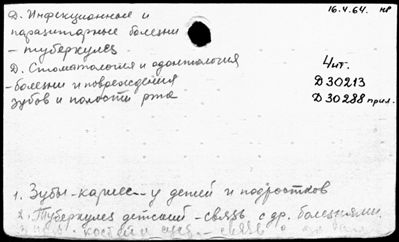 Д. Инфекционные и
паразитарные болезни
- туберкулез
16.4.64. нр
Д. Стоматология и одонтология
- болезни и повреждения
зубов и полости рта
Чит.
Д 30213
Д 30288 прил.
1. Зубы - кариес - у детей и подростков
2. Туберкулез детский - связь с др. болезнями.
костей и - связь с